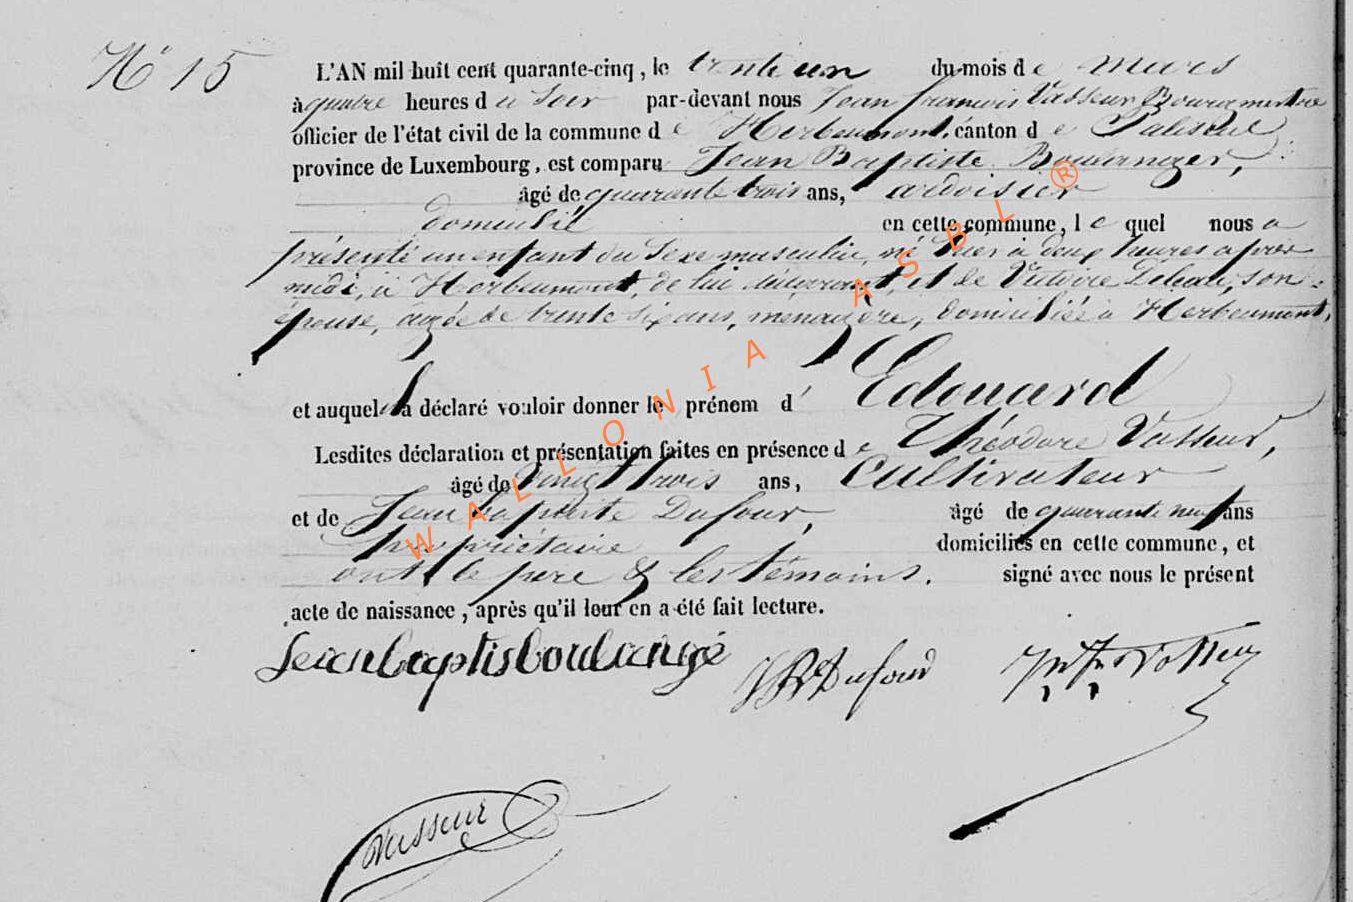 N° 15
L'AN mil huit cent quarante-cinq, le trente un du mois de mars
à quatre heures du Soir par-devant nous Jean francois Vasseur Bourgmestre
officier de l'état civil de la commune de Herbeumont, canton de Paliseul
province de Luxembourg, est comparu Jean Baptiste
âgé de quarante trois ans, ardoisier
domicilié en cette commune, lequel nous a
présenté un enfant du Sexe masculin, né hier à deux heures après
midi, à Herbeumont, de lui déclarant, et de Victoire son
épouse, agée de trente six ans, menagère, domiciliée à Herbeumont,
et auquel il a déclaré vouloir donner le prénom d'Edouard
Lesdites déclaration et présentation faites en présence de Théodore Vasseur,
âgé de Vingt trois ans, Cultivateur
et de Jean baptiste Dufour, âgé de quarante neuf ans
propriétaire domiciliés en cette commune, et
ont le pere & les témoins. signé avec nous le présent
acte de naissance, après qu'il leur en a été fait lecture.
Jean baptis boulangé JB Dufour Vasseur
Vasseur
WALLONIA ASBL ®